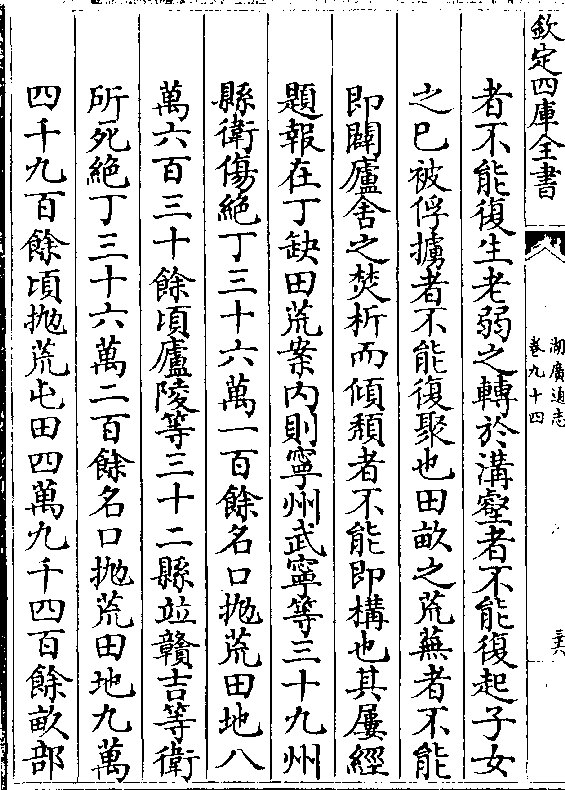 欽定四庫全書
湖廣通志
卷九十四
三六
者不能復生老弱之轉於溝壑者不能復起子女
之已被俘擄者不能復聚也田畝之荒蕪者不能
即闢廬舍之焚析而傾頽者不能即構也其屢經
題報在丁缺田荒案內則寧州武寧等三十九州
縣衛傷絶丁三十六萬一百餘名口抛荒田地八
萬六百三十餘頃廬陵等三十二縣並贛吉等衛
所死絶丁三十六萬二百餘名口抛荒田地九萬
四千九百餘頃抛荒屯田四萬九千四百餘畝部